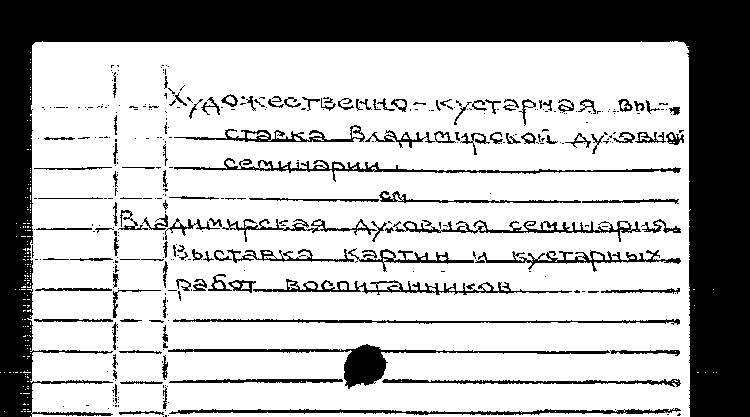 Художественно-кустарная вы-
ставка Владимирской духовной
семинарии.
см
Владимирская духовная семинария.
Выставка картин и кустарных
работ воспитанников